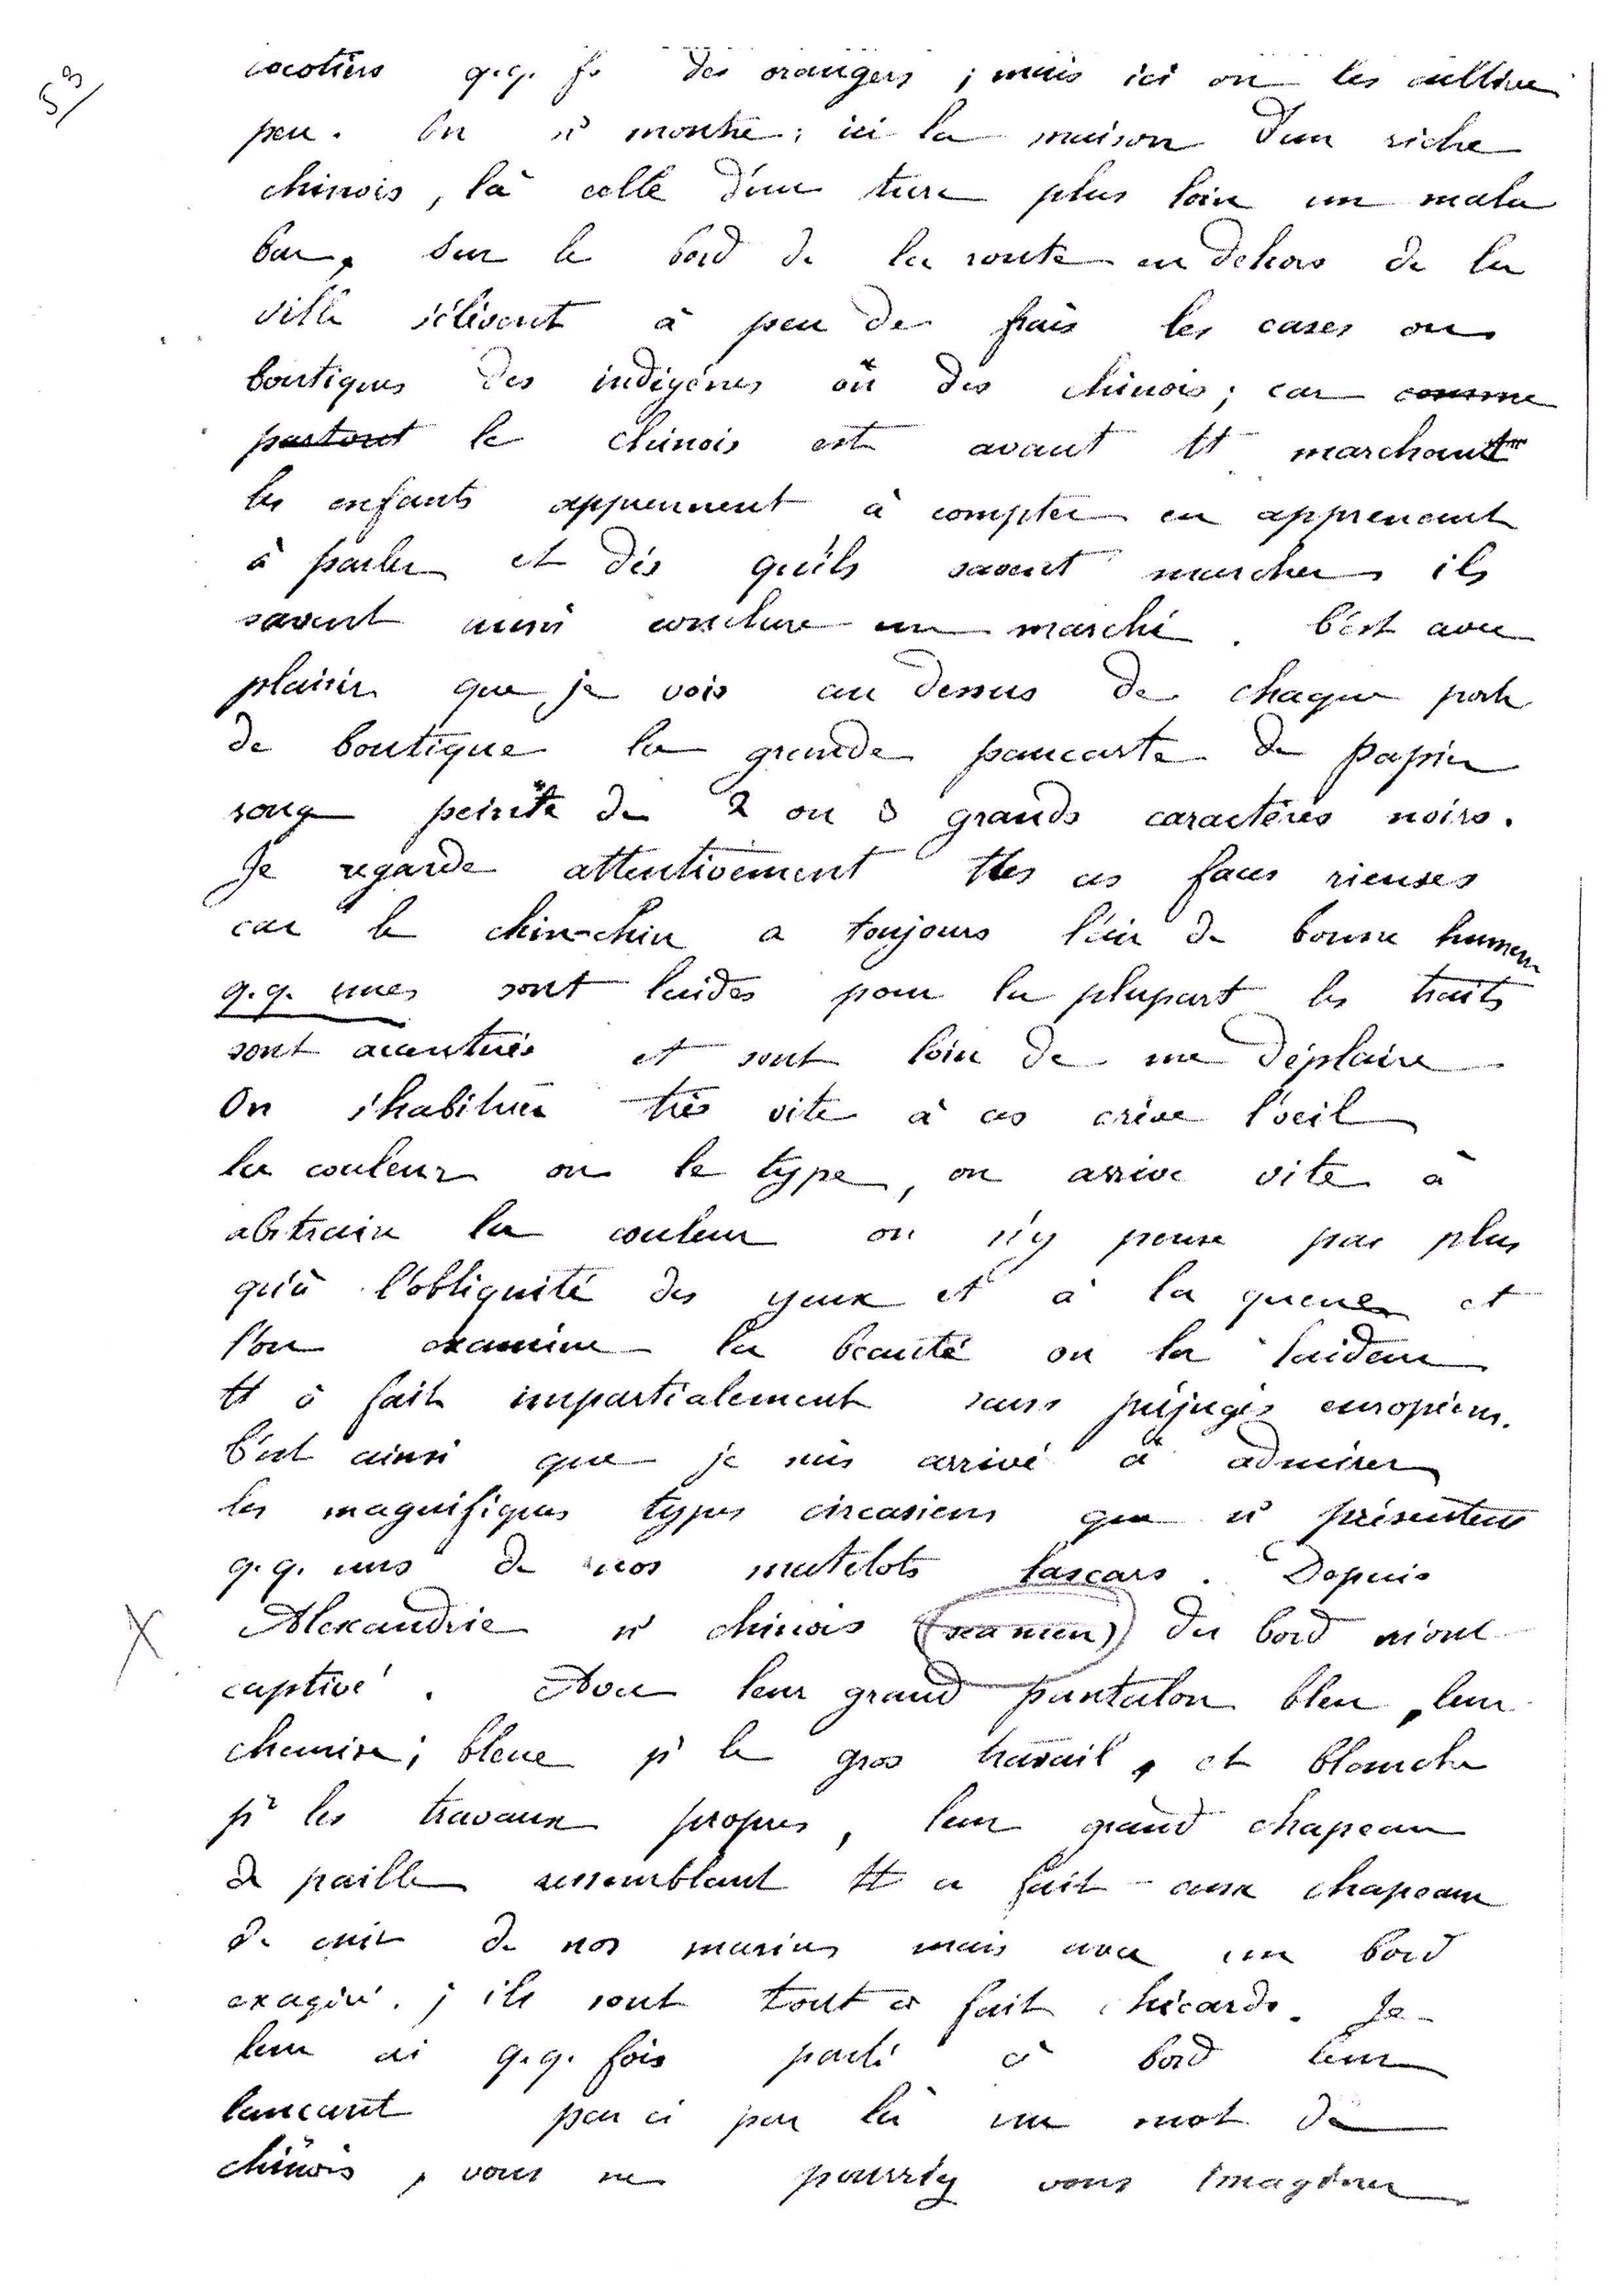 53
cocotiers q.q. fs des orangers ; mais ici on les cultive
peu. On ns montre : ici la maison d'un riche
chinois, là celle d'un turc plus loin un mala
bar, sur le bord de la route en dehors de la
ville s'élèvent à peu de frais les cases ou
boutiques des indigènes ou des chinois ; car comme
partout le chinois est avant tt marchant
les enfants apprennent à compter en apprenant
à parler et dès qu'ils savent marcher ils
savent aussi conclure un marché. C'est avec
plaisir que je vois au dessus de chaque porte
de boutique la grande pancarte de papier
rouge peinte de 2 ou 3 grands caractères noirs.
Je regarde attentivement ttes ces faces rieuses
car le chin-chin a toujours l'air de bonne humeur
q.q. unes sont laides pour la plupart les traits
sont accentués et sont loin de me déplaire
On s'habitue très vite à ces crève l'oeil
la couleur ou le type, on arrive vite à
abstraire la couleur on n'y pense pas plus
qu'à l'obliquité des yeux et à la queue et
l'on examine la beauté ou la laideur
tt à fait impartialement sans préjugés européens.
C'est ainsi que je suis arrivé à admirer
les magnifiques types circasiens que ns présentent
q.q. uns de nos matelots lascars. Depuis
X Alexandrie ns chinois (seamen) du bord m'ont
captivé. Avec leur grand pantalon bleu, leur
chemise ; bleue pr le gros travail, et blanche
pr les travaux propres, leur grand chapeau
de paille ressemblant tt a fait aux chapeau
de cuir de nos marins mais avec un bord
exagéré. ; ils sont tout à fait chicards. Je
leur ai q.q. fois parlé à bord leur
lancant par ci par là un mot de
chinois, vous ne pourriez vous imaginer